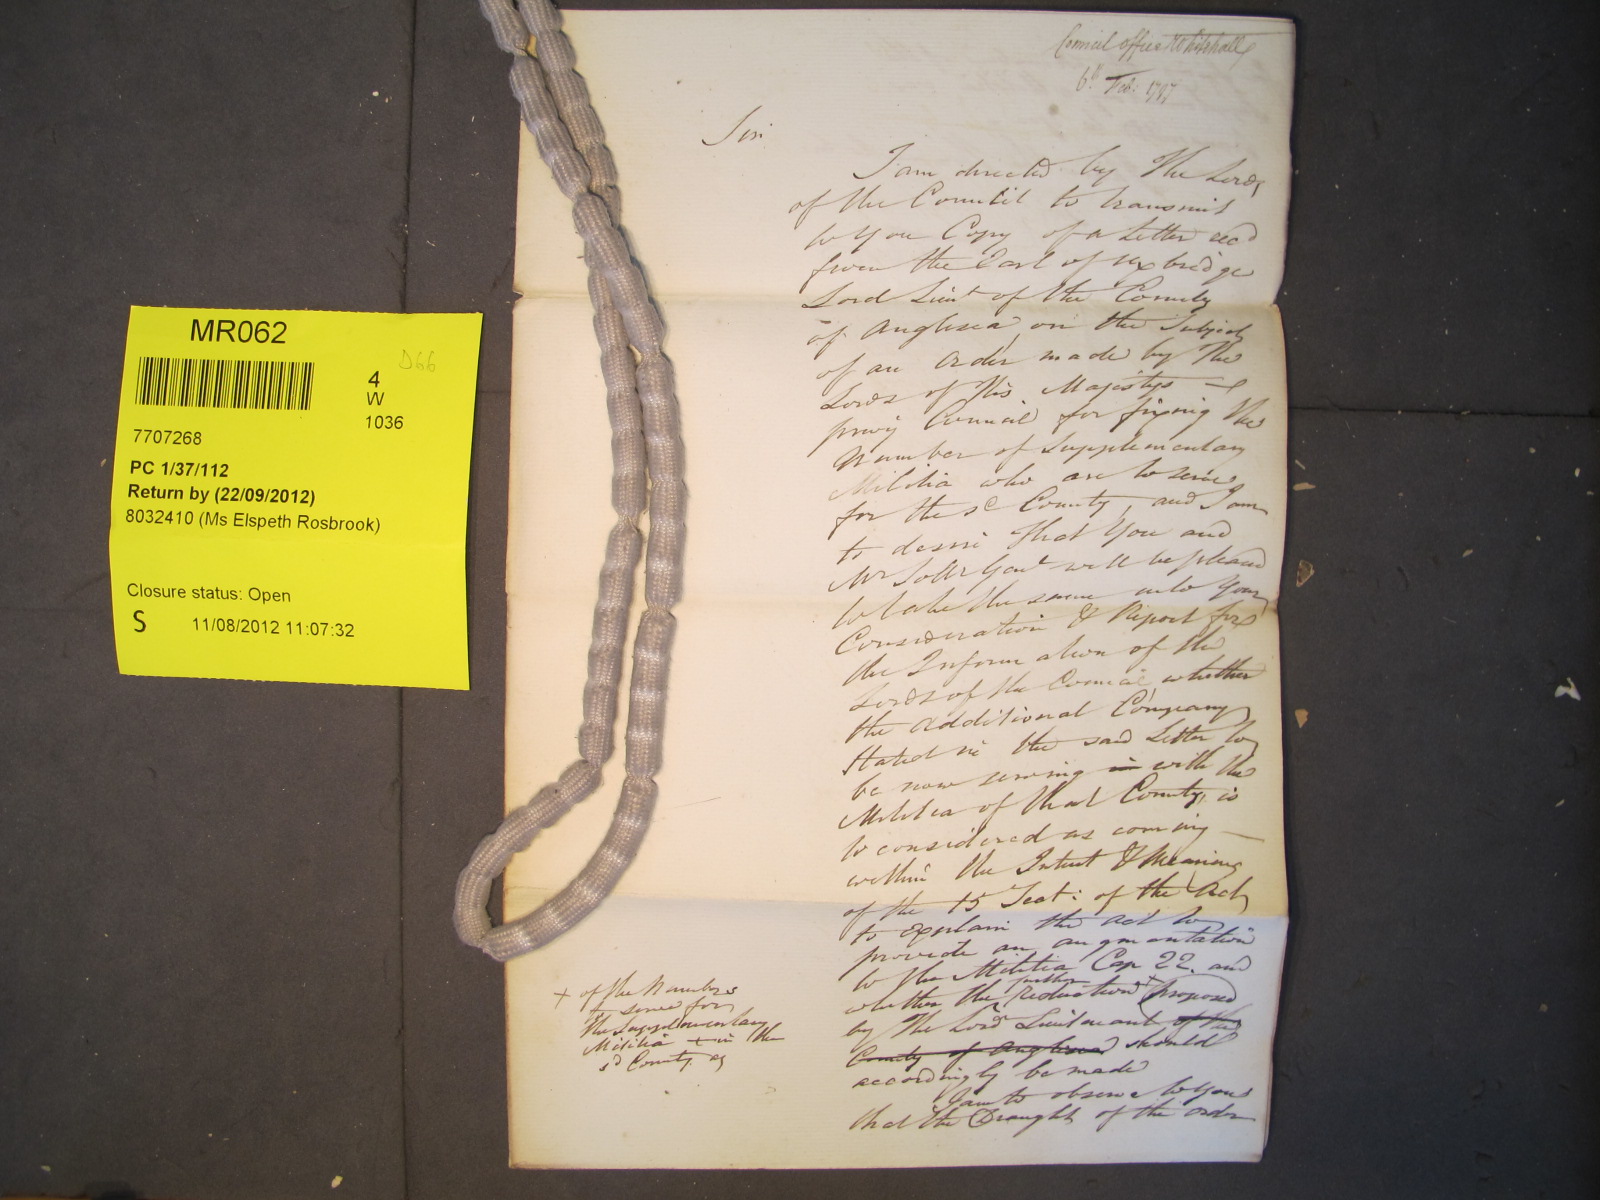 MR062
D66
4
W
1036
7707268
PC 1/37/112
Return by (22/09/2012)
8032410 (Ms Elspeth Rosbrook)
Closure status: Open
S 11/08/2012 11:07:32
Council office Whitehall
6th Feb: 1797
Sir
I am directed by The Lords
of the Council to transmit
to You Copy of a Letter recd
from the Earl of Uxbridge
Lord Lieut of the County
of Anglesea, on the Subject
of an order made by The
Lords of His Majestys
privy Council for fixing the
Number of Supplementary
Militia who are to serve
for the sd County, and I am
to desire that You and
Mr Sollr Genl will be pleased
to take the same into Your
Consideration & Report for
the Information of the
Lords of the Council whether
the additional Company
stated in the said Letter to
be now serving in with the
Militia of that County, is
to considered as coming
within the Intent & Meaning
of the 15 Sect: of the Act
to explain the act to
provide an augmentation
to the Militia Cap 22. and
further
whether the Reduction + proposed
by The Lord Lieutenant of the
County of Anglesea should
accordingly be made
I am to observe to You
that the Draught of the order
+ of the Numbers
to serve for
the Supplementary
Militia + in the
sd County as